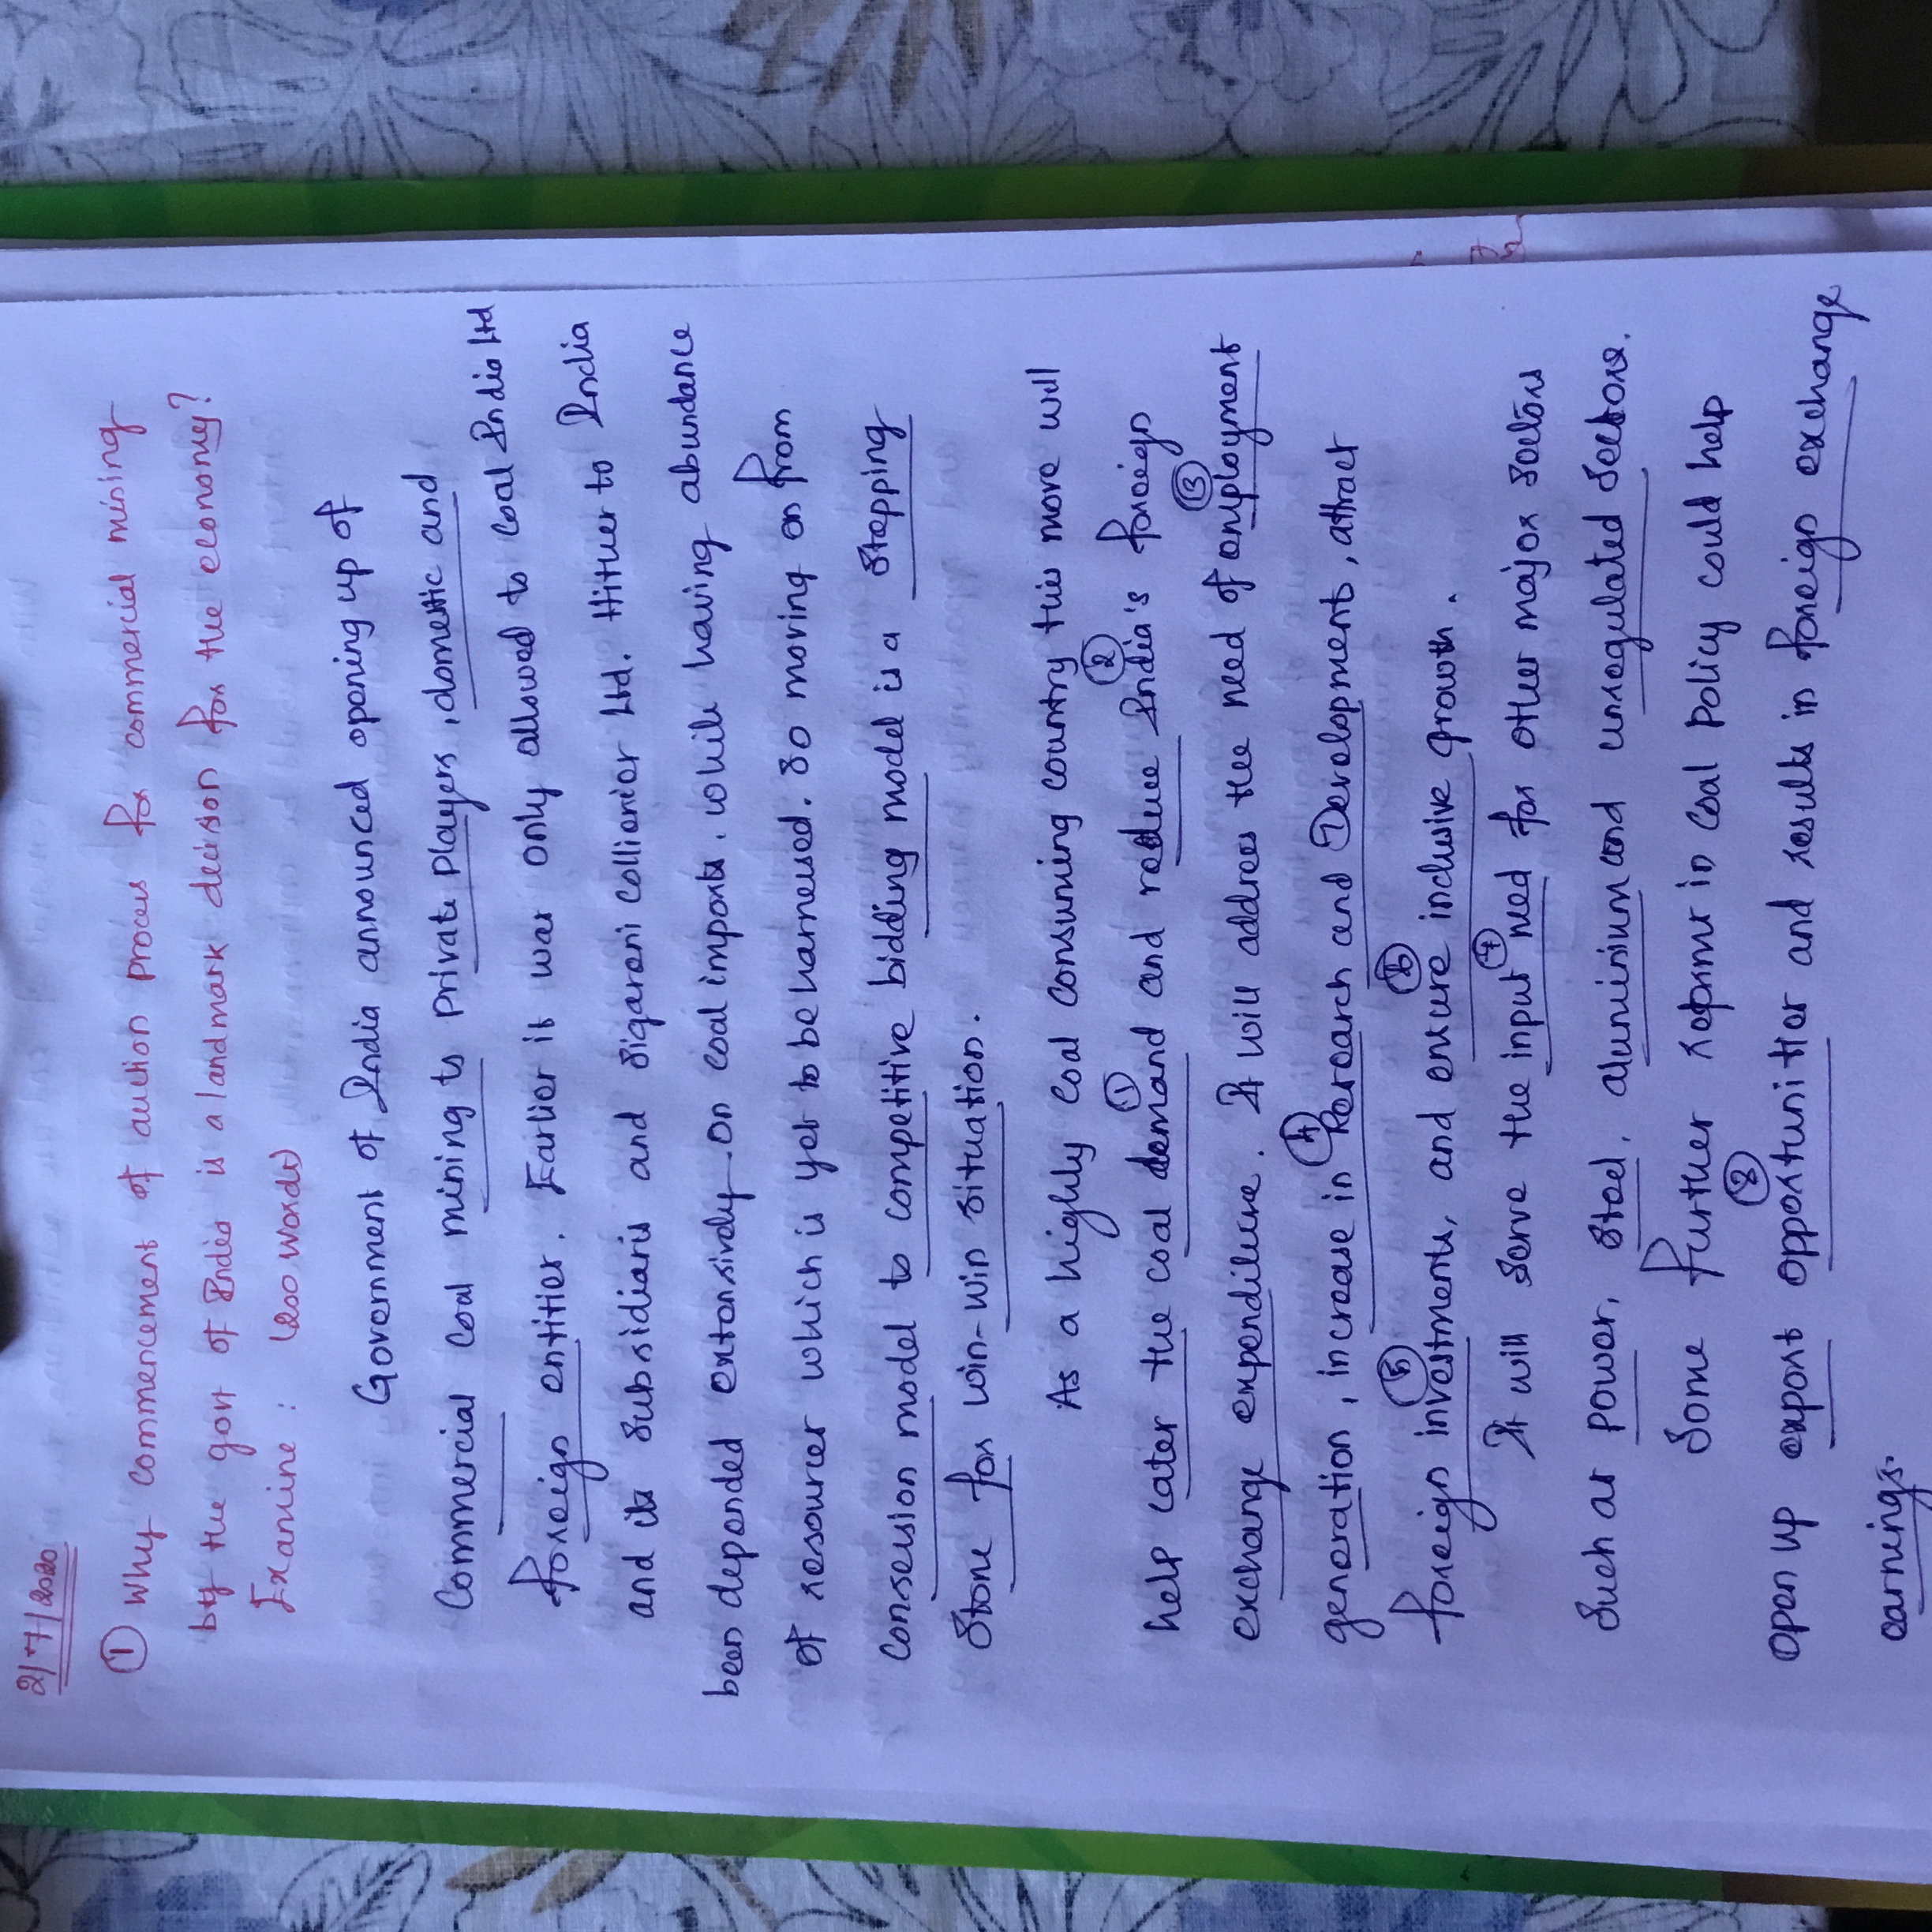 2/7/2020
① Why commencement of auction proces for commercial mining
by the govt of India is a landmark decision for the economy?
Examine : (250 words)
Government of India announced opening up of
Commercial coal mining to private players, domestic and
foreign entities. Earlier it was only allowed to Coal India Ltd
and its subsidiaris and sigareni collieries Ltd. Hither to India
been depended extensively on coal imports, while having abundance
of resources which is yet to be harnessed. So moving on from
consession model to competitive bidding model is a stepping
stone for win-win situation.
As a highly coal consuming country this move will
help cater the coal ① demand and reduce ② India's foreign
exchange expenditure. It will address the need of ③ employment
generation, increase in ④ Research and Development, attract
foreign ⑤ investments, and ensure ⑥ inclusive growth.
It will serve the input ⑦ need for other major sectors
Such as power, steel, aluminium and unregulated sectors.
Some further reforms in coal policy could help
open up export ⑧ opportunities and results in foreign exchange
earnings.